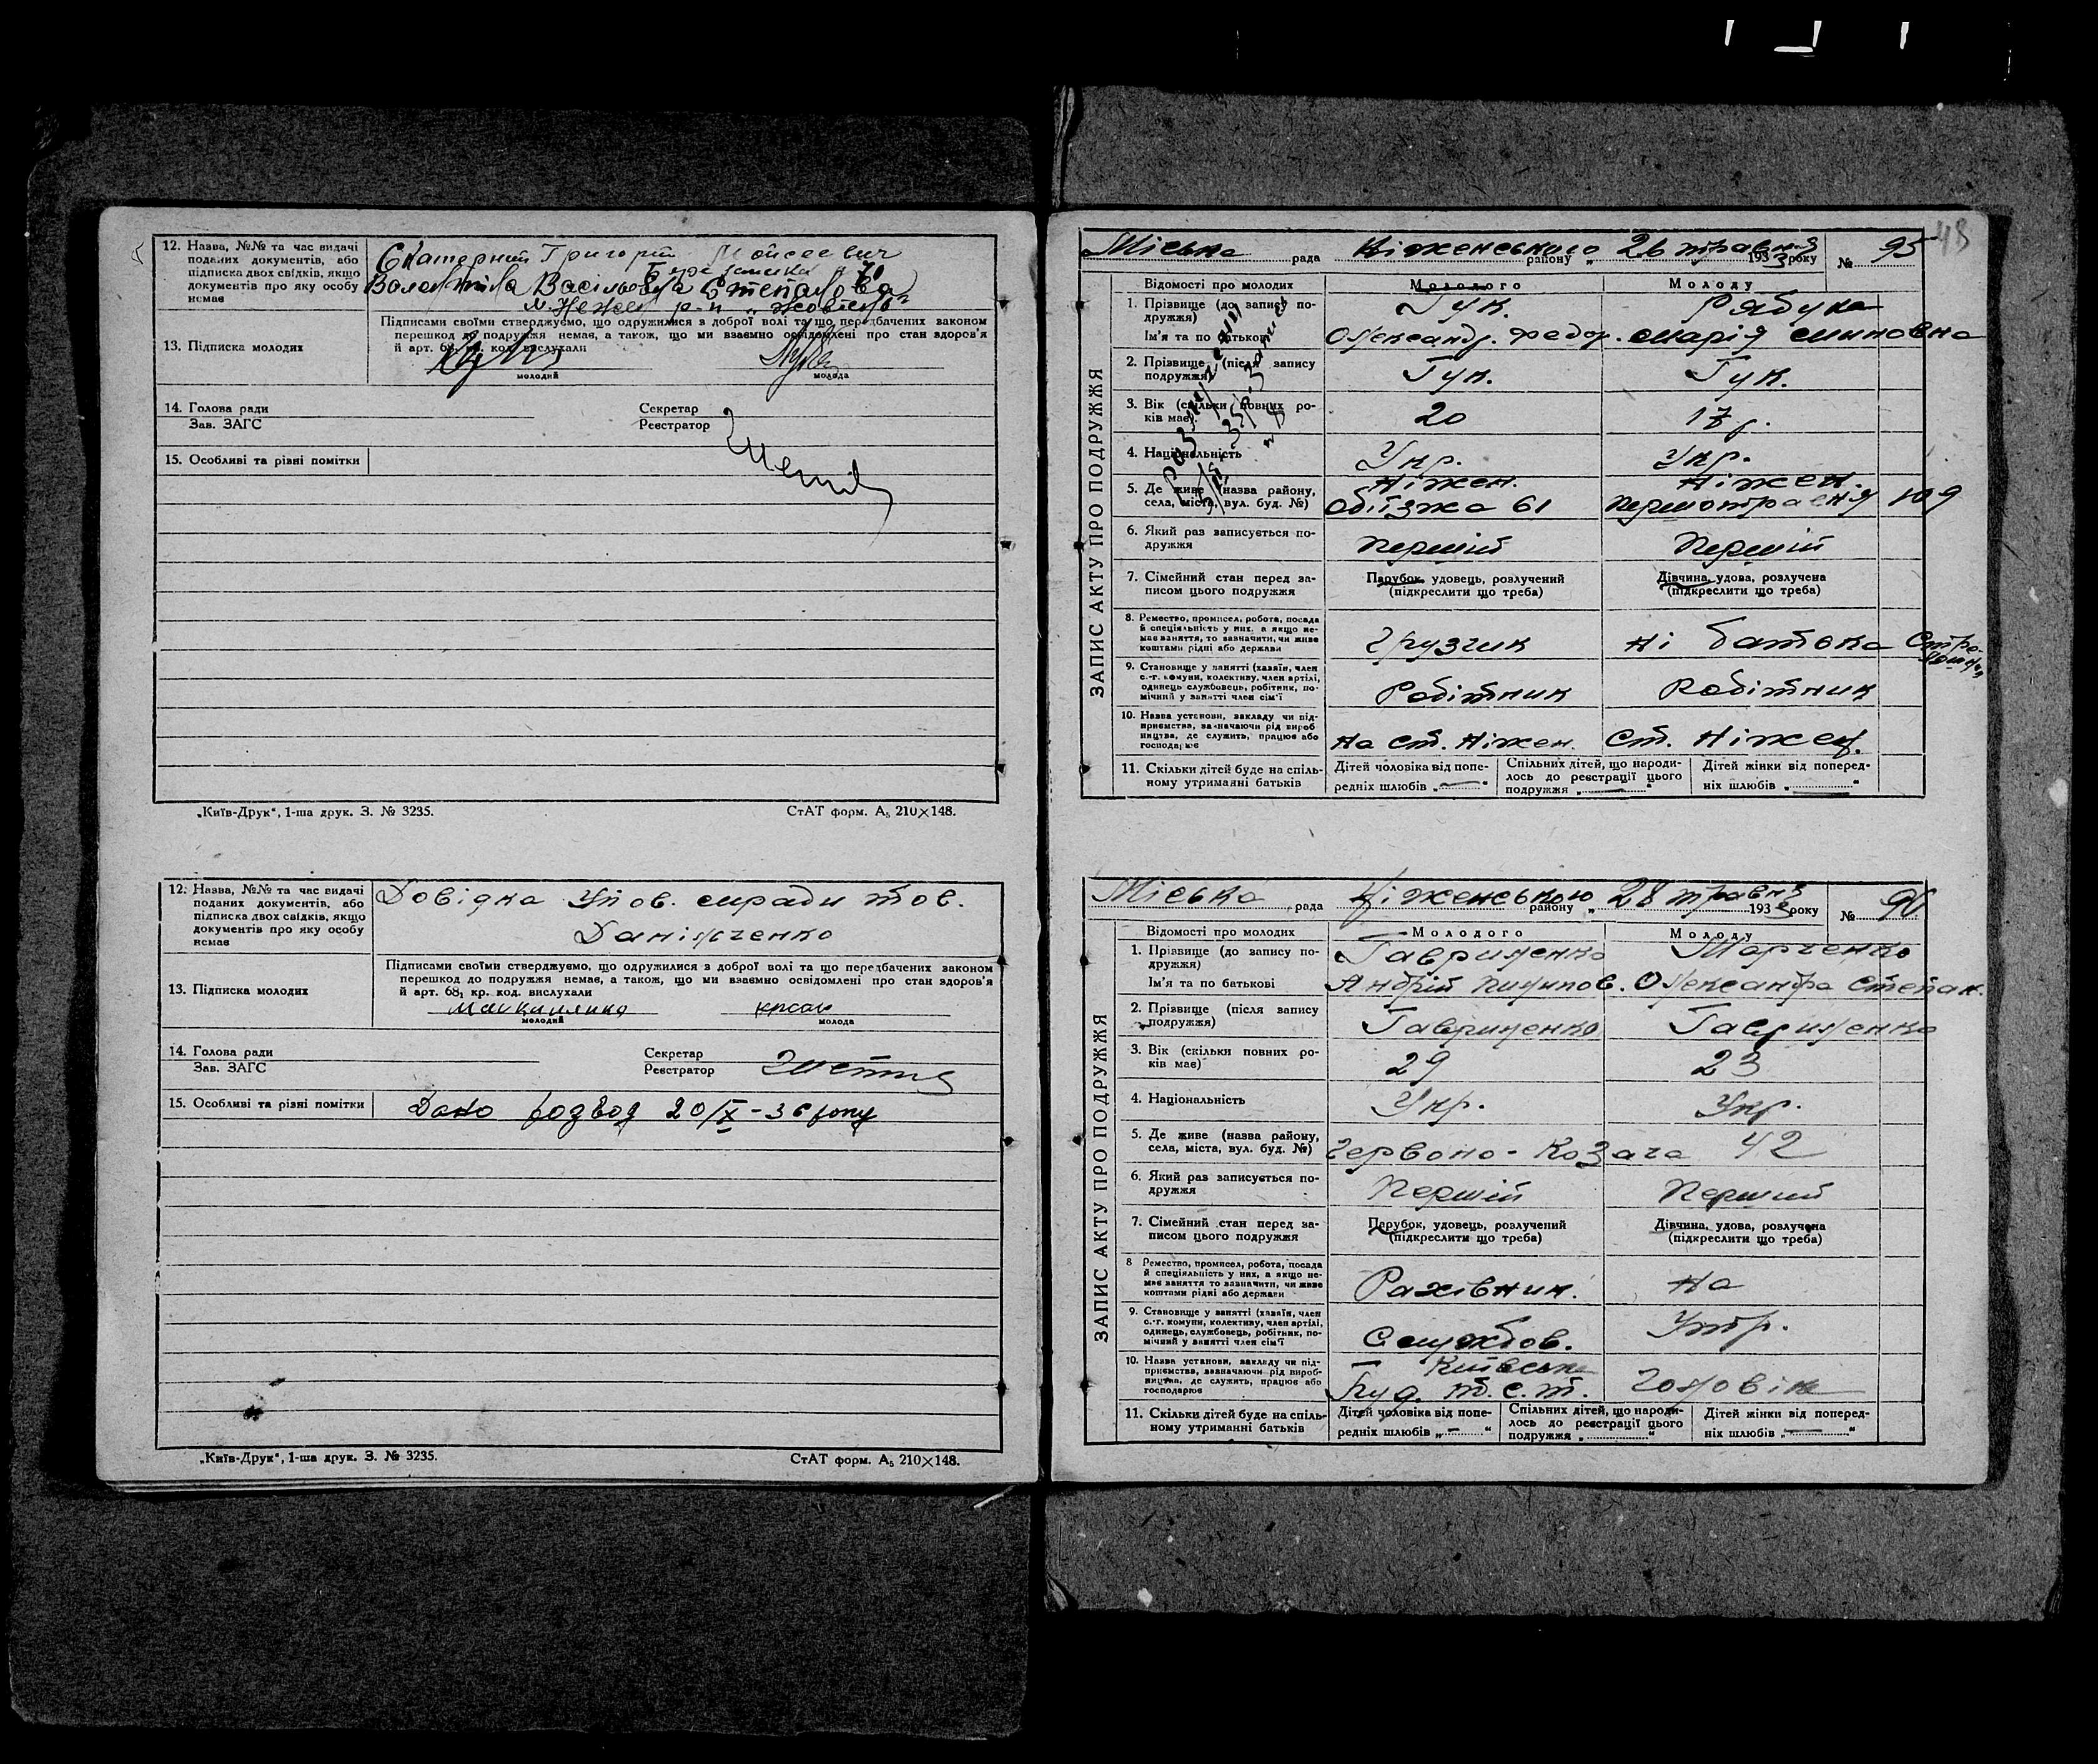 12. Назва, №№ та час видачі
поданих документів, або
підписка двох свідків, якщо
документів про яку особу
немає
Скатерний Григорій Мойсеевич
70
Степанова
Підписами своїми стверджуємо, що одружилися з доброї волі та що передбачених законом
перешкод до подружжя немає, а також, що ми взаємно освідомлені про стан здоров'я
й арт. 68, кр. код. вислухали
13. Підписка молодих
молодий
молода
14. Голова ради
Зав. ЗАГС
Секретар
Реєстратор
15. Особливі та різні помітки
„Київ-Друк“, 1-ша друк. З. № 3235.
СтАТ форм. А₅ 210×148.
12. Назва, №№ та час видачі
поданих документів, або
підписка двох свідків, якщо
документів про яку особу
немає
Довідка Упов. тов.
Данільченко
Підписами своїми стверджуємо, що одружилися з доброї волі та що передбачених законом
перешкод до подружжя немає, а також, що ми взаємно освідомлені про стан здоров'я
й арт. 68, кр. код. вислухали
13. Підписка молодих
молодий
молода
14. Голова ради
Зав. ЗАГС
Секретар
Реєстратор
15. Особливі та різні помітки
Дано розвод 20/X-36 року
„Київ-Друк“, 1-ша друк. З. № 3235.
СтАТ форм. А₅ 210×148.
48
Міська рада Ніженського району „ 26 травня 1933 року № 95
ЗАПИС АКТУ ПРО ПОДРУЖЖЯ
Відомості про молодих
Молодого
Молоду
1. Прізвище (до запису по-
дружжя)
Гук.
Рябуха
Ім'я та по батькові
Олександр. Федор.
Марія
2. Прізвище (після запису
подружжя)
Гук.
Гук.
3. Вік (скільки повних ро-
ків має)
20
17 р.
4. Національність
Укр.
Укр.
5. Де живе (назва району,
села, міста, вул. буд. №)
Ніжен.
Обїзжа 61
Ніжен.
Першотравня 109
6. Який раз записується по-
дружжя
Перший
Перший
7. Сімейний стан перед за-
писом цього подружжя
Парубок, удовець, розлучений
(підкреслити що треба)
Дівчина, удова, розлучена
(підкреслити що треба)
8. Ремество, промисел, робота, посада
й спеціяльність у них, а якщо не-
має заняття, то зазначити, чи живе
коштами рідні або держави
Грузчик
Ні батька
9. Становище у занятті (хазяїн, член
с.-г. комуни, колективу, член артілі,
одинець службовець, робітник, по-
мічний у занятті член сім'ї
Робітник
Робітник
10. Назва установи, закладу чи під-
приємства, зазначаючи рід вироб-
ництва, де служить, працює або
господарює
На ст. Ніжен.
ст. Ніжен.
11. Скільки дітей буде на спіль-
ному утриманні батьків
Дітей чоловіка від попе-
редніх шлюбів „ — “
Спільних дітей, що народи-
лось до реєстрації цього
подружжя „ — “
Дітей жінки від поперед-
ніх шлюбів „ — “
Міська рада Ніженського району „ 28 травня 193 року № 96
ЗАПИС АКТУ ПРО ПОДРУЖЖЯ
Відомості про молодих
Молодого
Молоду
1. Прізвище (до запису по-
дружжя)
Гавриленко
Марченко
Ім'я та по батькові
Андрій Пилипов.
Олександра Степан.
2. Прізвище (після запису
подружжя)
Гавриленко
Гавриленко
3. Вік (скільки повних ро-
ків має)
29
23
4. Національність
Укр.
Укр.
5. Де живе (назва району,
села, міста, вул. буд. №)
Червоно-Козача 42
6. Який раз записується по-
дружжя
Перший
Перший
7. Сімейний стан перед за-
писом цього подружжя
Парубок, удовець, розлучений
(підкреслити що треба)
Дівчина, удова, розлучена
(підкреслити що треба)
8 Ремество, промисел, робота, посада
й спеціяльність у них, а якщо не-
має заняття то зазначити, чи живе
коштами рідні або держави
Рахівник.
На
9. Становище у занятті (хазяїн, член
с.-г. комуни, колективу, член артілі,
одинець, службовець, робітник, по-
мічний у занятті член сім'ї
Службов.
Утр.
10. Назва установи, закладу чи під-
приємства, зазначаючи рід вироб-
ництва, де служить, працює або
господарює
Київськ
Буд. т.с.т.
Чоловік
11. Скільки дітей буде на спіль-
ному утриманні батьків
Дітей чоловіка від попе-
редніх шлюбів „ — “
Спільних дітей, що народи-
лось до реєстрації цього
подружжя „ “
Дітей жінки від поперед-
ніх шлюбів „ — “